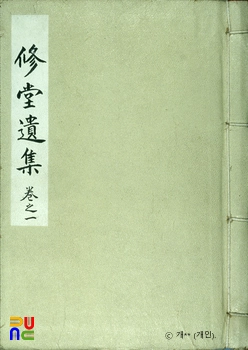 修堂遺集
卷之一
PUNC
ⓒ 개시 (개인).